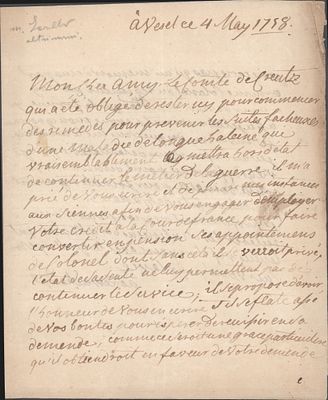 à Vesel ce 4 May 1758.
Mon cher amy, le Comte de
qui a été obligé de rester icy pour commencer
des remedes pour prevenir les suites facheuses
d'une maladie de longue halaine que
vraisemblablement le mettra hors d'etat
de continuer le metier de la guerre. il m'a
prié de vous ecrire et de mes instances
aux siennes afin de vous engager d'employer
votre credit a la Cour de france pour faire
convertir en pension ses appointemens
de Colonel dont sans cela il se verroit privé,
l'etat de sa santé ne luy permettant pas de
continuer le service, il se propose d'avoir
l'honneur de vous en ecrire il se flate
de vos bontés pour esperer de reussir en sa
demande, comme ce seroit une grace particuliere
qu'il obtiendroit en faveur de votre demande